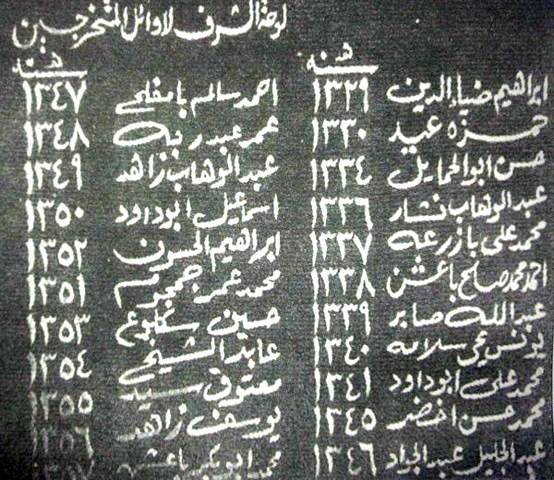 لوحة الشرف لاوائل المتخرجين
سنه
ابراهيم ضياء الدين ١٣٢٩
حمزه عيد ١٣٣٠
حسن ابو الحمايل ١٣٣٤
عبد الوهاب نشار ١٣٣٦
محمد علي بازرعه ١٣٣٧
احمد محمد صالح باعشن ١٣٣٨
عبد الله صابر ١٣٣٩
يونس يحي سلامه ١٣٤٠
محمد علي ابو داود ١٣٤١
محمد حسن اخضر ١٣٤٥
عبد الجليل عبد الجواد ١٣٤٦
سنه
احمد سالم بامفلح ١٣٤٧
عمر عبد ربه ١٣٤٨
عبد الوهاب زاهد ١٣٤٩
اسماعيل ابو داود ١٣٥٠
ابراهيم الحسون ١٣٥٢
محمد عمر جمجوم ١٣٥١
حسين ١٣٥٣
عابد الشيخ ١٣٥٤
معتوق سيد ١٣٥٥
يوسف زاهد ١٣٥٦
محمد ابو بكر باعشن ١٣٥٧